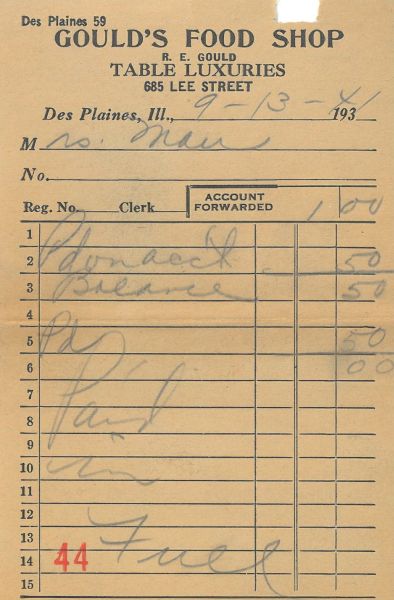 Des Plaines 59
GOULD'S FOOD SHOP
R. E. GOULD
TABLE LUXURIES
685 LEE STREET
Des Plaines, Ill., 9-13-41 193
Mrs. Mau
No.
Reg. No. Clerk ACCOUNT FORWARDED 1 00
1
2 Pd on acc't 50
3 Balance 50
4
5 Pd 50
6 00
7
8 Paid
9
10 in
11
12
13
14 44 Full
15